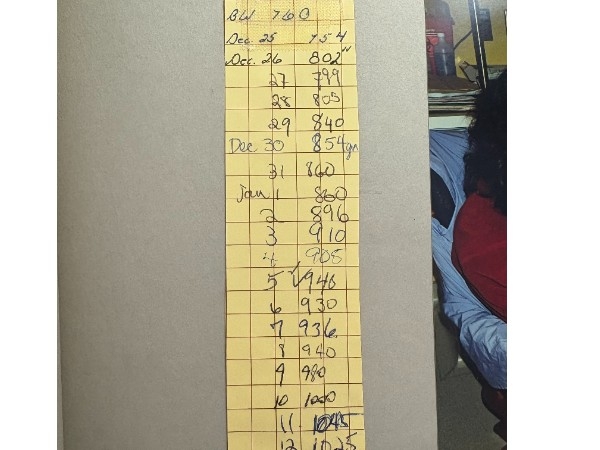 BW 760
Dec. 25 754
Dec. 26 802"
27 799
28 805
29 840
Dec 30 854gr
31 860
Jan 1 860
2 896
3 910
4 905
5 √946
6 930
7 936
8 940
9 980
10 1000
11 1045
12 1025